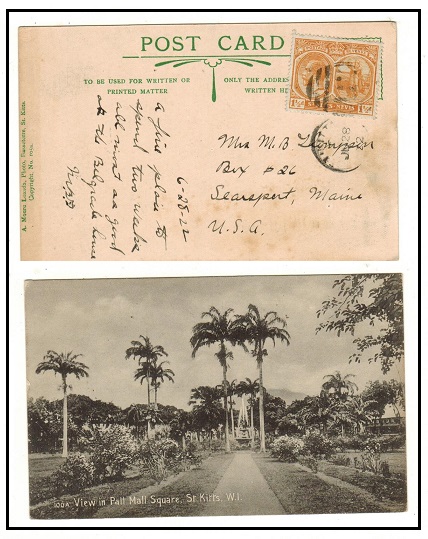 POST CARD
TO BE USED FOR WRITTEN OR
PRINTED MATTER
ONLY THE ADDRESS
WRITTEN HE
1½D
1½D
NEVIS
A. Moure Losada, Photo, Basseterre, St. Kitts
Copyright, No.
6-28-22
a fine place to
spend two weeks
all most as good
as the Belgrade
M.B.B
Mrs M.B Thompson
Box #26
Searsport, Maine
U.S.A.
100A View in Pall Mall Square, St Kitts, W.I.